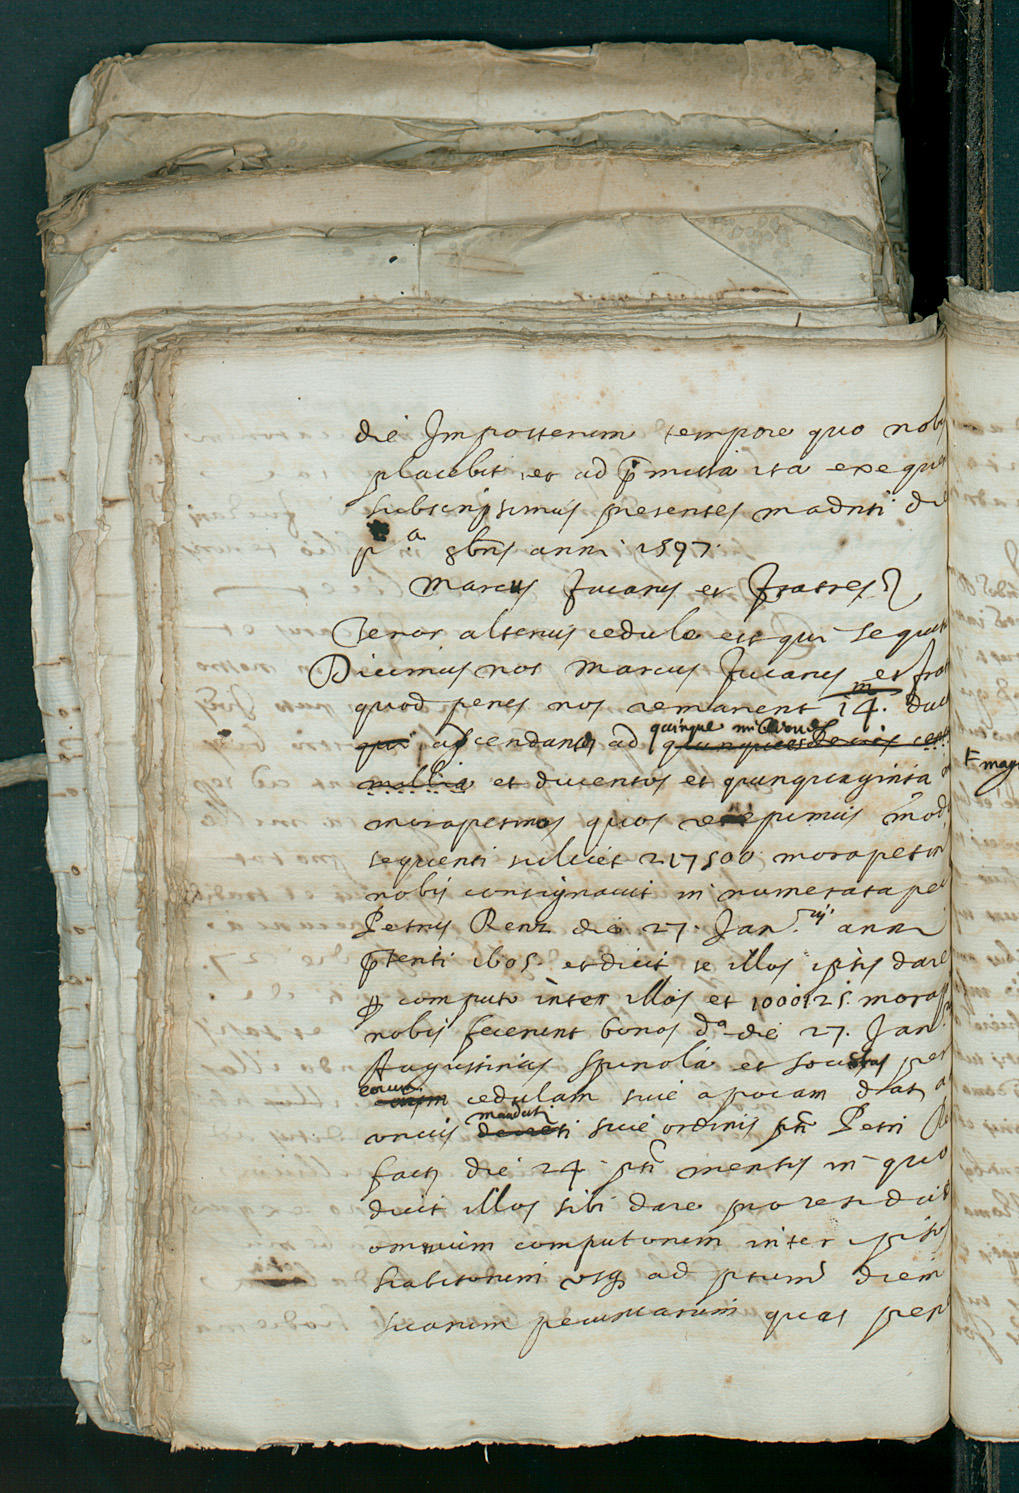 die Imposterum tempore quo nob
placebit et ad p̄missa ita exequ
subscripsimus presentes madriti di
pª 8bris anni 1597.
Marcus Fucarus et Fratres
Tenor alterius cedule est qui sequit
Dicimus nos Marcus Fucarus et fra
quod penes nos remanent 14. m duc
qui ascendant ad quinque miliones
millia et ducentos et quinquaginta
morapetinos quos recepimus mod
sequenti scilicet 217500 morapetin
nobis consignavit in numerata pe
Petrus Renz die 27. Jan.rij anni
p̄senti 1605. et dicit se illos ipsis dare
computo inter illos et 1000125 morap
nobis fecerunt bonos dª die 27. Jan
Augustinus Spinola et socii per
eorum cedulam sive apocam
unius mandati sive ordinis Petri
fact die 24 mensis in quo
dicit illos sibi dare pro residuit
omnium computorum inter ipsos
habitorum usq ad diem
suarum pecuniarum quas pen